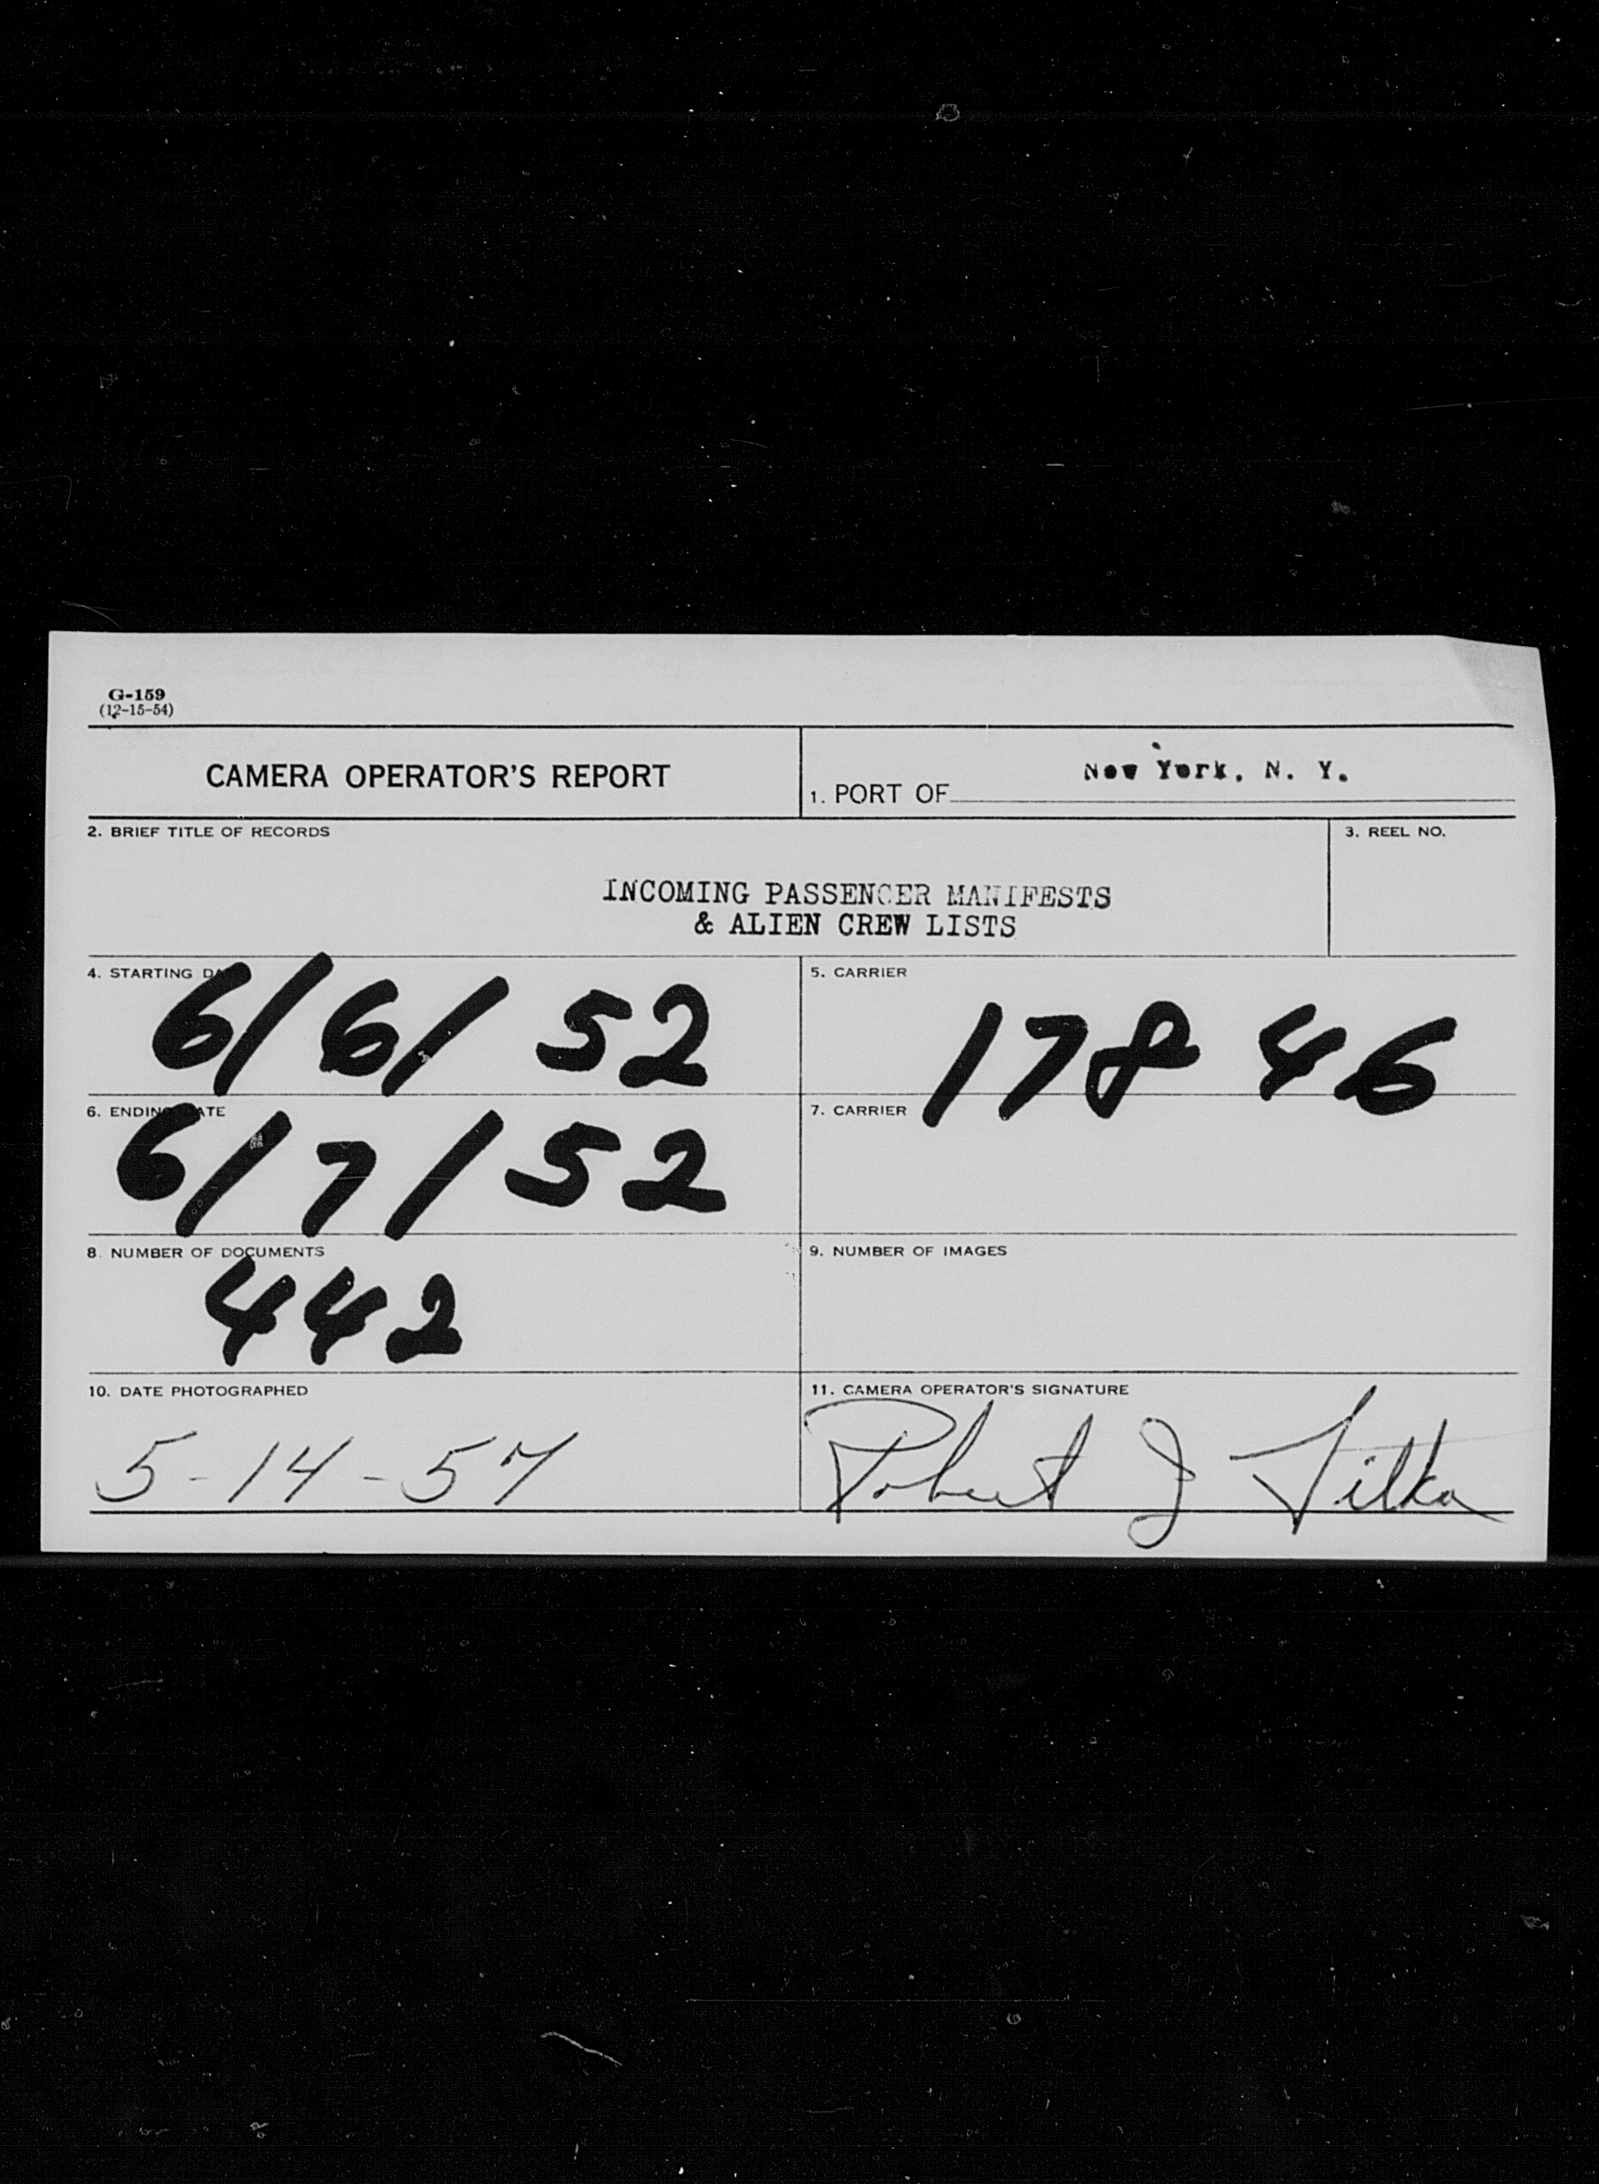 G-159
(12-15-54)
CAMERA OPERATOR'S REPORT
1. PORT OF New York, N. Y.
2. BRIEF TITLE OF RECORDS
3. REEL NO.
INCOMING PASSENGER MANIFESTS
& ALIEN CREW LISTS
4. STARTING DATE
6/6/52
5. CARRIER
17846
6. ENDING DATE
6/7/52
7. CARRIER
8. NUMBER OF DOCUMENTS
442
9. NUMBER OF IMAGES
10. DATE PHOTOGRAPHED
5-14-57
11. CAMERA OPERATOR'S SIGNATURE
Robert J